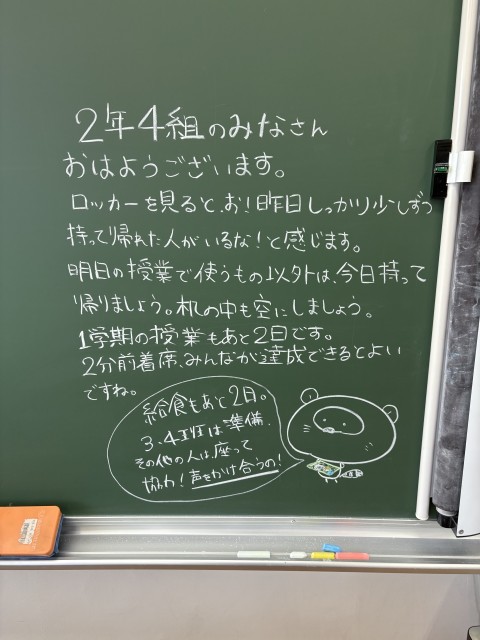 2年4組のみなさん
おはようございます。
ロッカーを見ると、お！昨日しっかり少しずつ
持って帰れた人がいるな！と感じます。
明日の授業で使うもの以外は、今日持って
帰りましょう。机の中も空にしましょう。
1学期の授業もあと2日です。
2分前着席、みんなが達成できるとよい
ですね。
給食もあと2日。
3.4班は準備、
その他の人は座って
協力！声をかけ合うの！